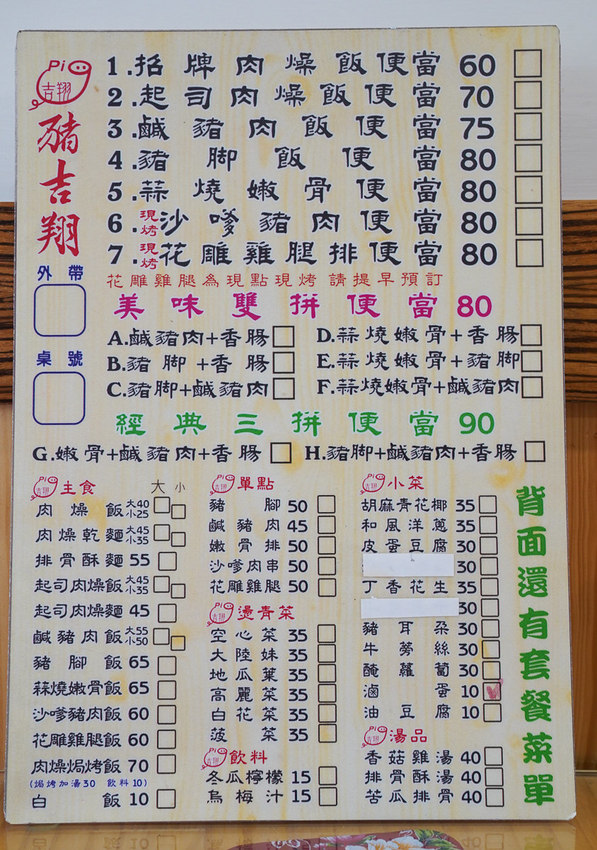 Pi
吉翔
豬吉翔
1.招牌肉燥飯便當 60
2.起司肉燥飯便當 70
3.鹹豬肉飯便當 75
4.豬腳飯便當 80
5.蒜燒嫩骨便當 80
6.現烤沙嗲豬肉便當 80
7.現烤花雕雞腿排便當 80
花雕雞腿為現點現烤 請提早預訂
外帶
桌號
美味雙拼便當 80
A.鹹豬肉+香腸
D.蒜燒嫩骨+香腸
B.豬腳+香腸
E.蒜燒嫩骨+豬腳
C.豬腳+鹹豬肉
F.蒜燒嫩骨+鹹豬肉
經典三拼便當 90
G.嫩骨+鹹豬肉+香腸
H.豬腳+鹹豬肉+香腸
主食 大 小
肉燥飯 大40 小25
肉燥乾麵 大45 小35
排骨酥麵 55
起司肉燥飯 大45 小35
起司肉燥麵 45
鹹豬肉飯 大55 小50
豬腳飯 65
蒜燒嫩骨飯 65
沙嗲豬肉飯 60
花雕雞腿飯 60
肉燥焗烤飯 70
(焗烤加湯30 飲料10)
白飯 10
單點
豬腳 50
鹹豬肉 45
嫩骨排 50
沙嗲肉串 50
花雕雞腿 50
燙青菜
空心菜 35
大陸妹 35
地瓜葉 35
高麗菜 35
白花菜 35
菠菜 35
飲料
冬瓜檸檬 15
烏梅汁 15
小菜
胡麻青花椰 35
和風洋蔥 35
皮蛋豆腐 30
30
丁香花生 35
30
豬耳朵 30
牛蒡絲 30
醃蘿蔔 30
滷蛋 10
油豆腐 10
湯品
香菇雞湯 40
排骨酥湯 40
苦瓜排骨 40
背面還有套餐菜單